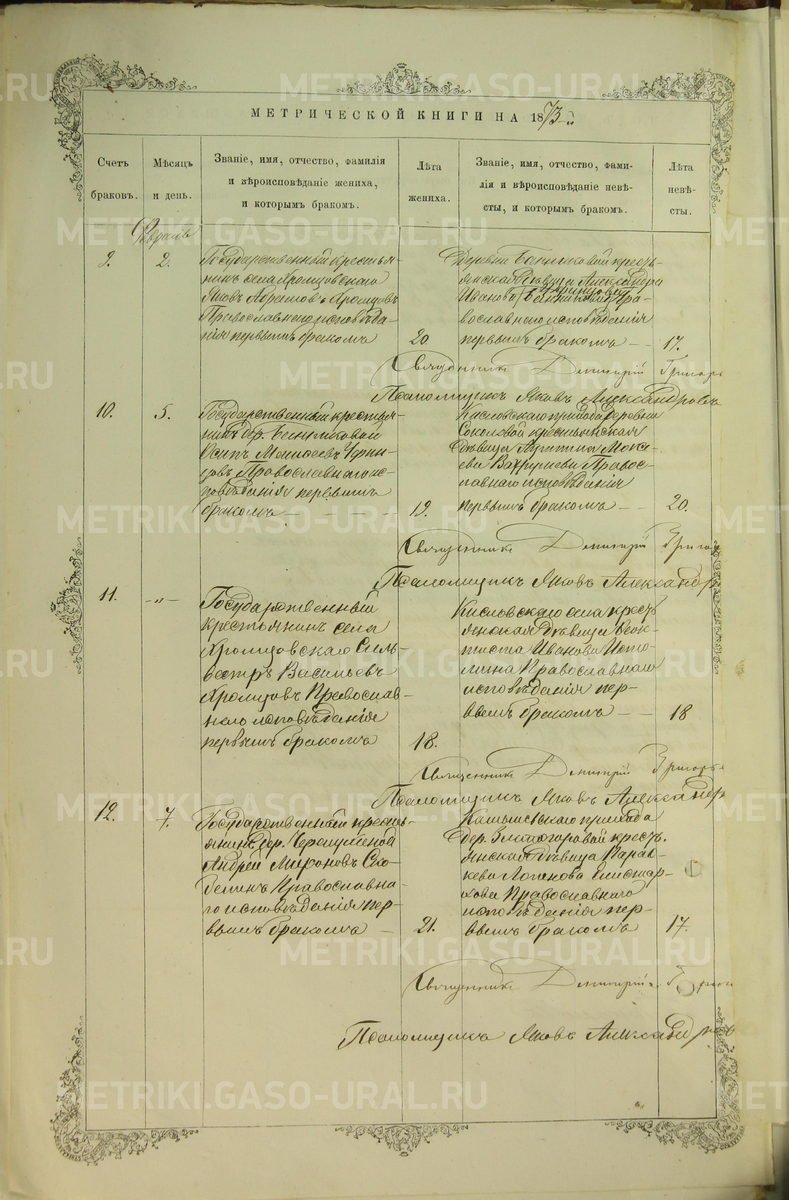 МЕТРИЧЕСКОЙ КНИГИ НА 1873 г.
Счетъ браковъ.
Мѣсяцъ и день.
Званіе, имя, отчество, фамилія
и вѣроисповѣданіе жениха,
и которымъ бракомъ.
Лѣта
жениха.
Званіе, имя, отчество, фами-
лія и вѣроисповѣданіе невѣ-
сты, и которымъ бракомъ.
Лѣта
невѣ-
сты.
Февраль
9.
2.
Государственный крестья-
нинъ села Хромцовскаго
Яковъ Абрамовъ Хромцовъ
Православнаго исповѣда-
нія первымъ бракомъ
20
Деревни крестъ-
янская дѣвица Александра
Иванова Пра-
вославнаго исповѣданія
первымъ бракомъ
17.
Священникъ Димитрій Григорь
Псаломщикъ Яковъ Александровъ
10.
5.
Государственный крестья-
нинъ дер.
Осипъ Моисеевъ
Православнаго ис-
повѣданія первымъ
бракомъ
19.
Кисловскаго прихода деревни
Соколовой крестьянская
дѣвица Мока-
ева Вахрушева Право-
славнаго исповѣданія
первымъ бракомъ
20.
Священникъ Димитрій Григор
Псаломщикъ Яковъ Александр
11.
-"-
Государственный
крестьянинъ села
Хромцовскаго Силь-
вестръ Васильевъ
Хромцовъ Православ-
наго исповѣданія
первымъ бракомъ
18.
Кисловскаго села крестъ
янская дѣвица Ѳеок-
тиста Иванова Исто-
мина Православнаго
исповѣданія пер-
вымъ бракомъ
18
Священникъ Димитрій Григорь
Псаломщикъ Яковъ Александр
12.
7.
Государственный крестъ-
янинъ дер.
Андрей Мироновъ Ско-
белинъ Православна-
го исповѣданія пер-
вымъ бракомъ
21.
прихода
дер. крестъ-
янская дѣвица Парас-
кева
Православнаго
исповѣданія пер-
вымъ бракомъ
17.
Священникъ Димитрій Григо
Псаломщикъ Яковъ Александров
METRIKI.GASO-URAL.RU